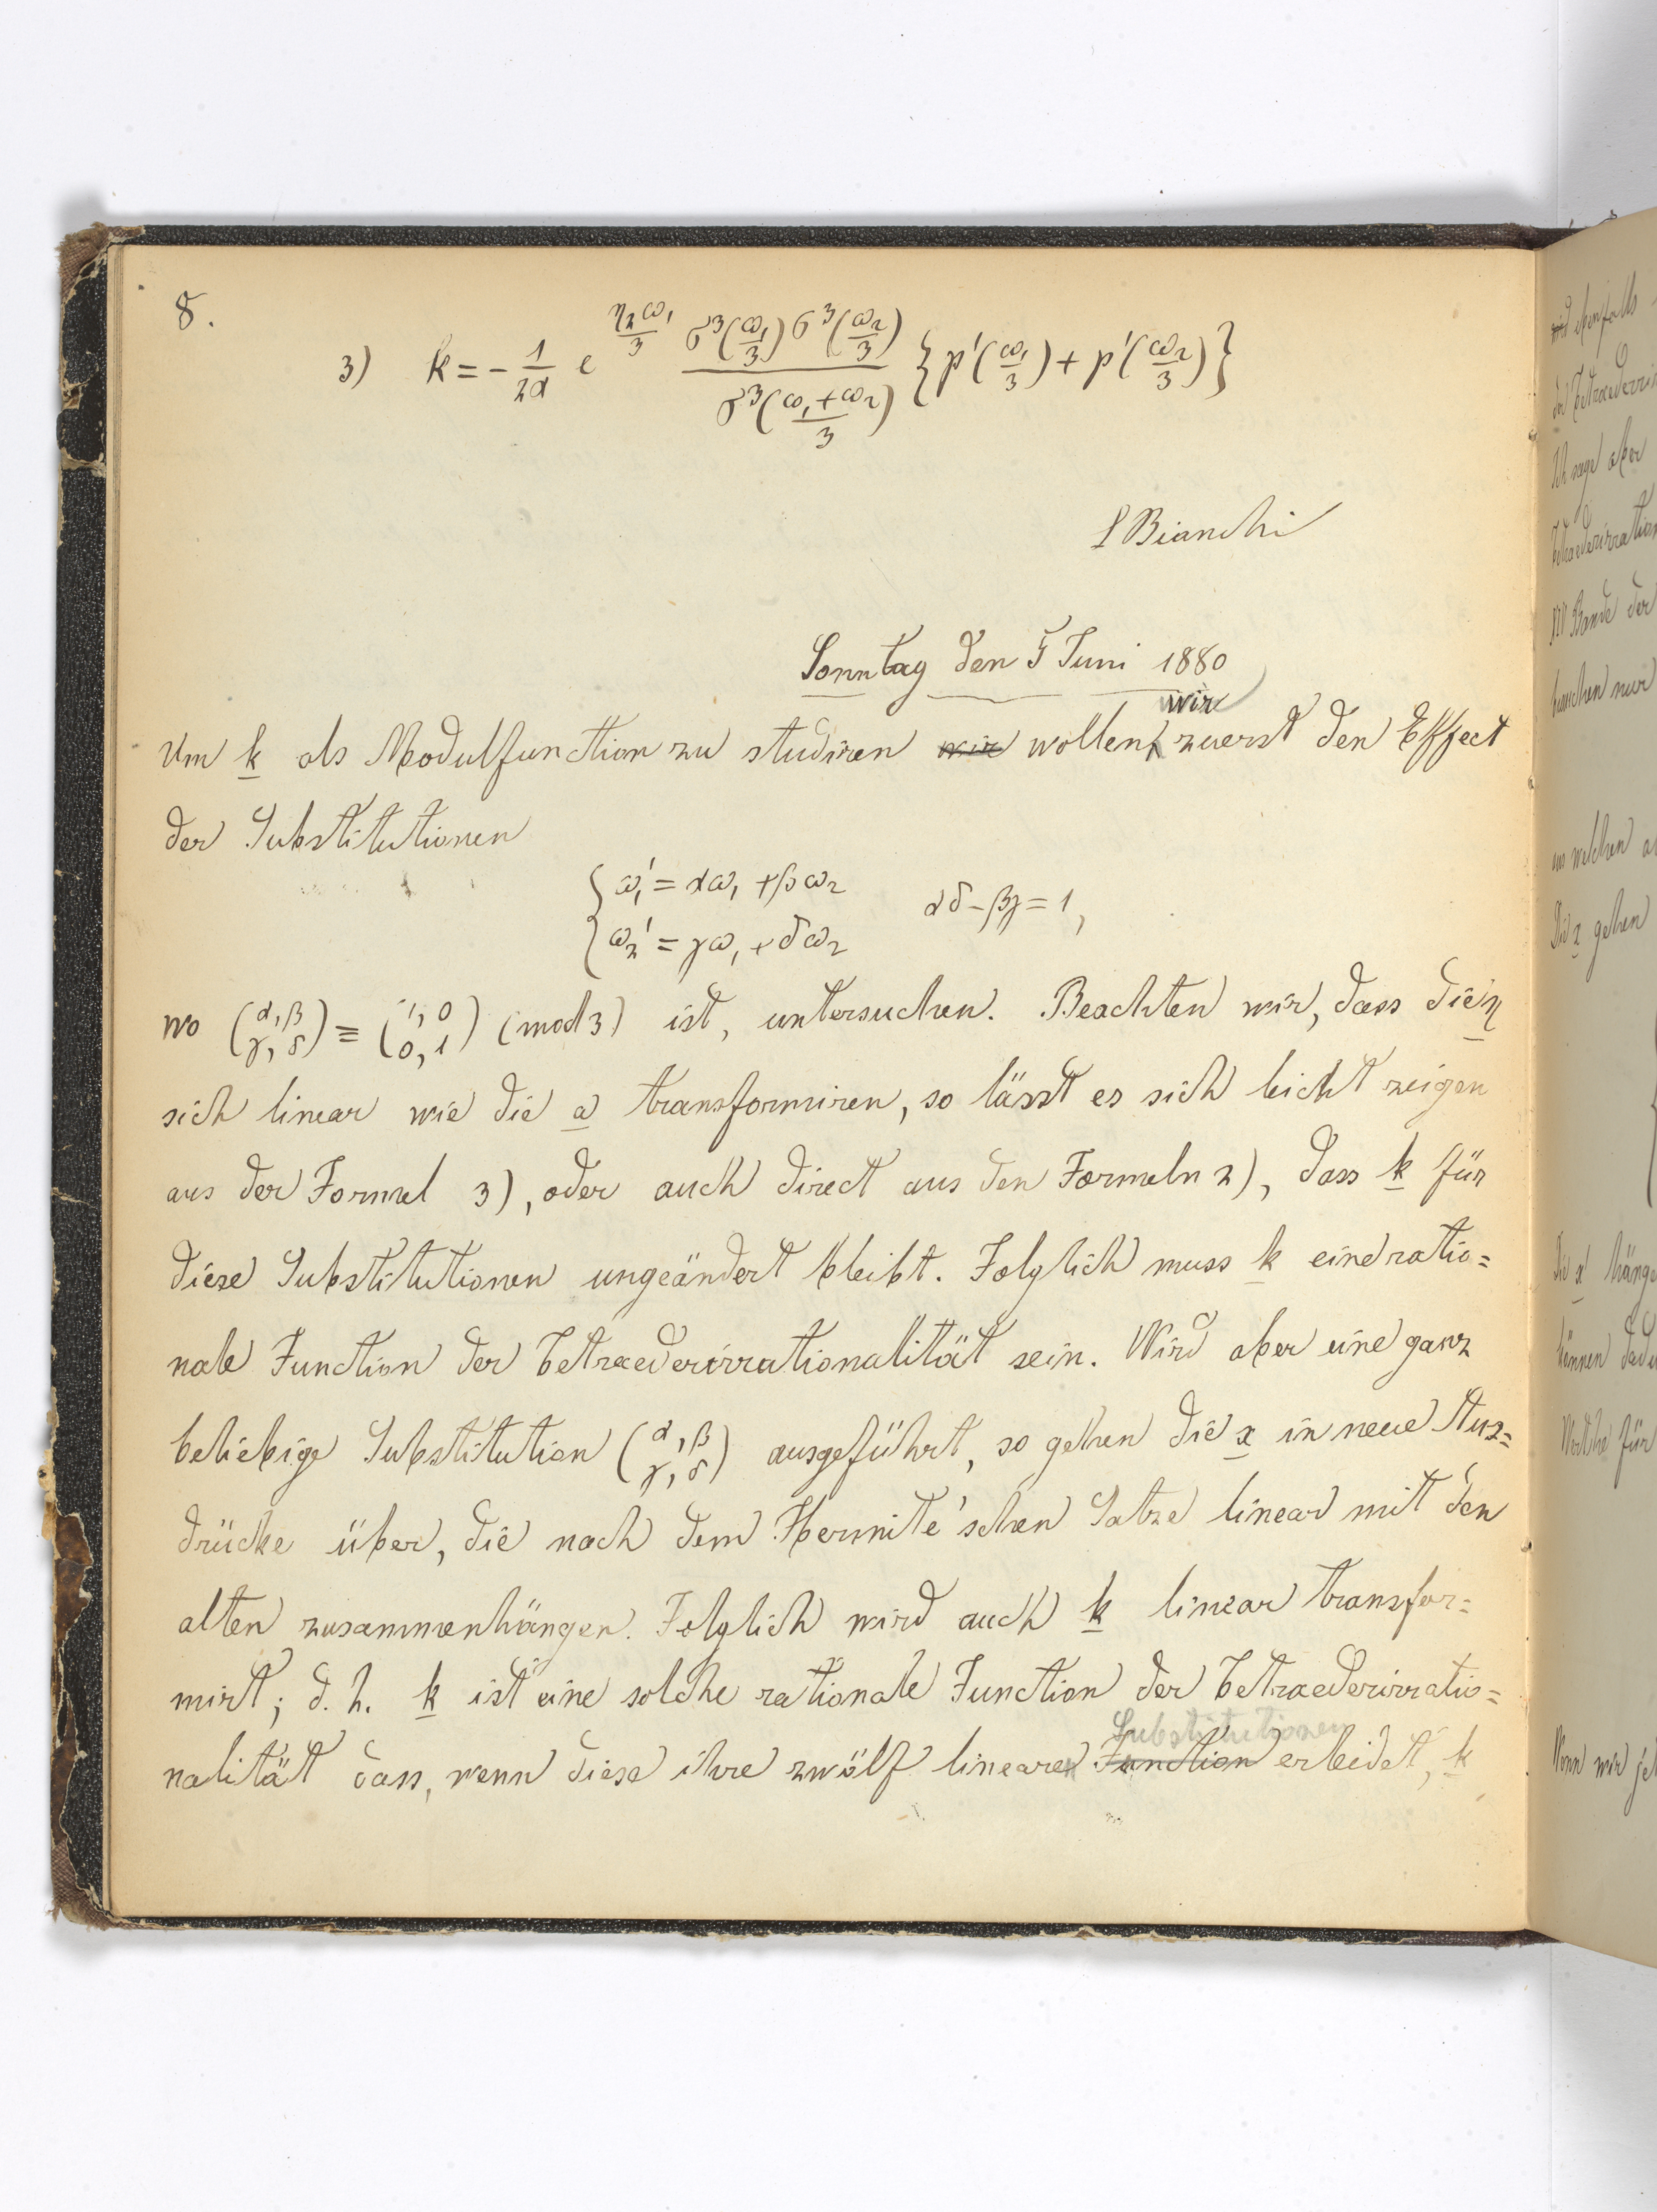 8.
3) k = - 1/2α e^{η₂ω₁/3} σ³(ω₁/3) σ³(ω₂/3) / σ³((ω₁+ω₂)/3) {p'(ω₁/3) + p'(ω₂/3)}
L Bianchi
Sonntag den 5 Juni 1880
wir
Um k als Modulfunction zu studiren wir wollen zuerst den Effect
der Substitutionen
{ω₁' = αω₁ + βω₂
{ω₂' = γω₁ + δω₂ αδ-βγ = 1,
wo (α,β γ,δ) ≡ (1,0 0,1) (mod 3) ist, untersuchen. Beachten wir, dass die η
sich linear wie die ω transformiren, so lässt es sich leicht zeigen
aus der Formel 3), oder auch direct aus den Formeln 2), dass k für
diese Substitutionen ungeändert bleibt. Folglich muss k eine ratio=
nale Function der Tetraederirrationalität sein. Wird aber eine ganz
beliebige Substitution (α,β γ,δ) ausgeführt, so gehen die x in neue Aus=
drücke über, die nach dem Hermite'schen Satze linear mit den
alten zusammenhängen. Folglich wird auch k linear transfor=
mirt; d. h. k ist eine solche rationale Function der Tetraederirratio=
Substitutionen
nalität dass, wenn diese ihre zwölf linearen Function erleidet, k